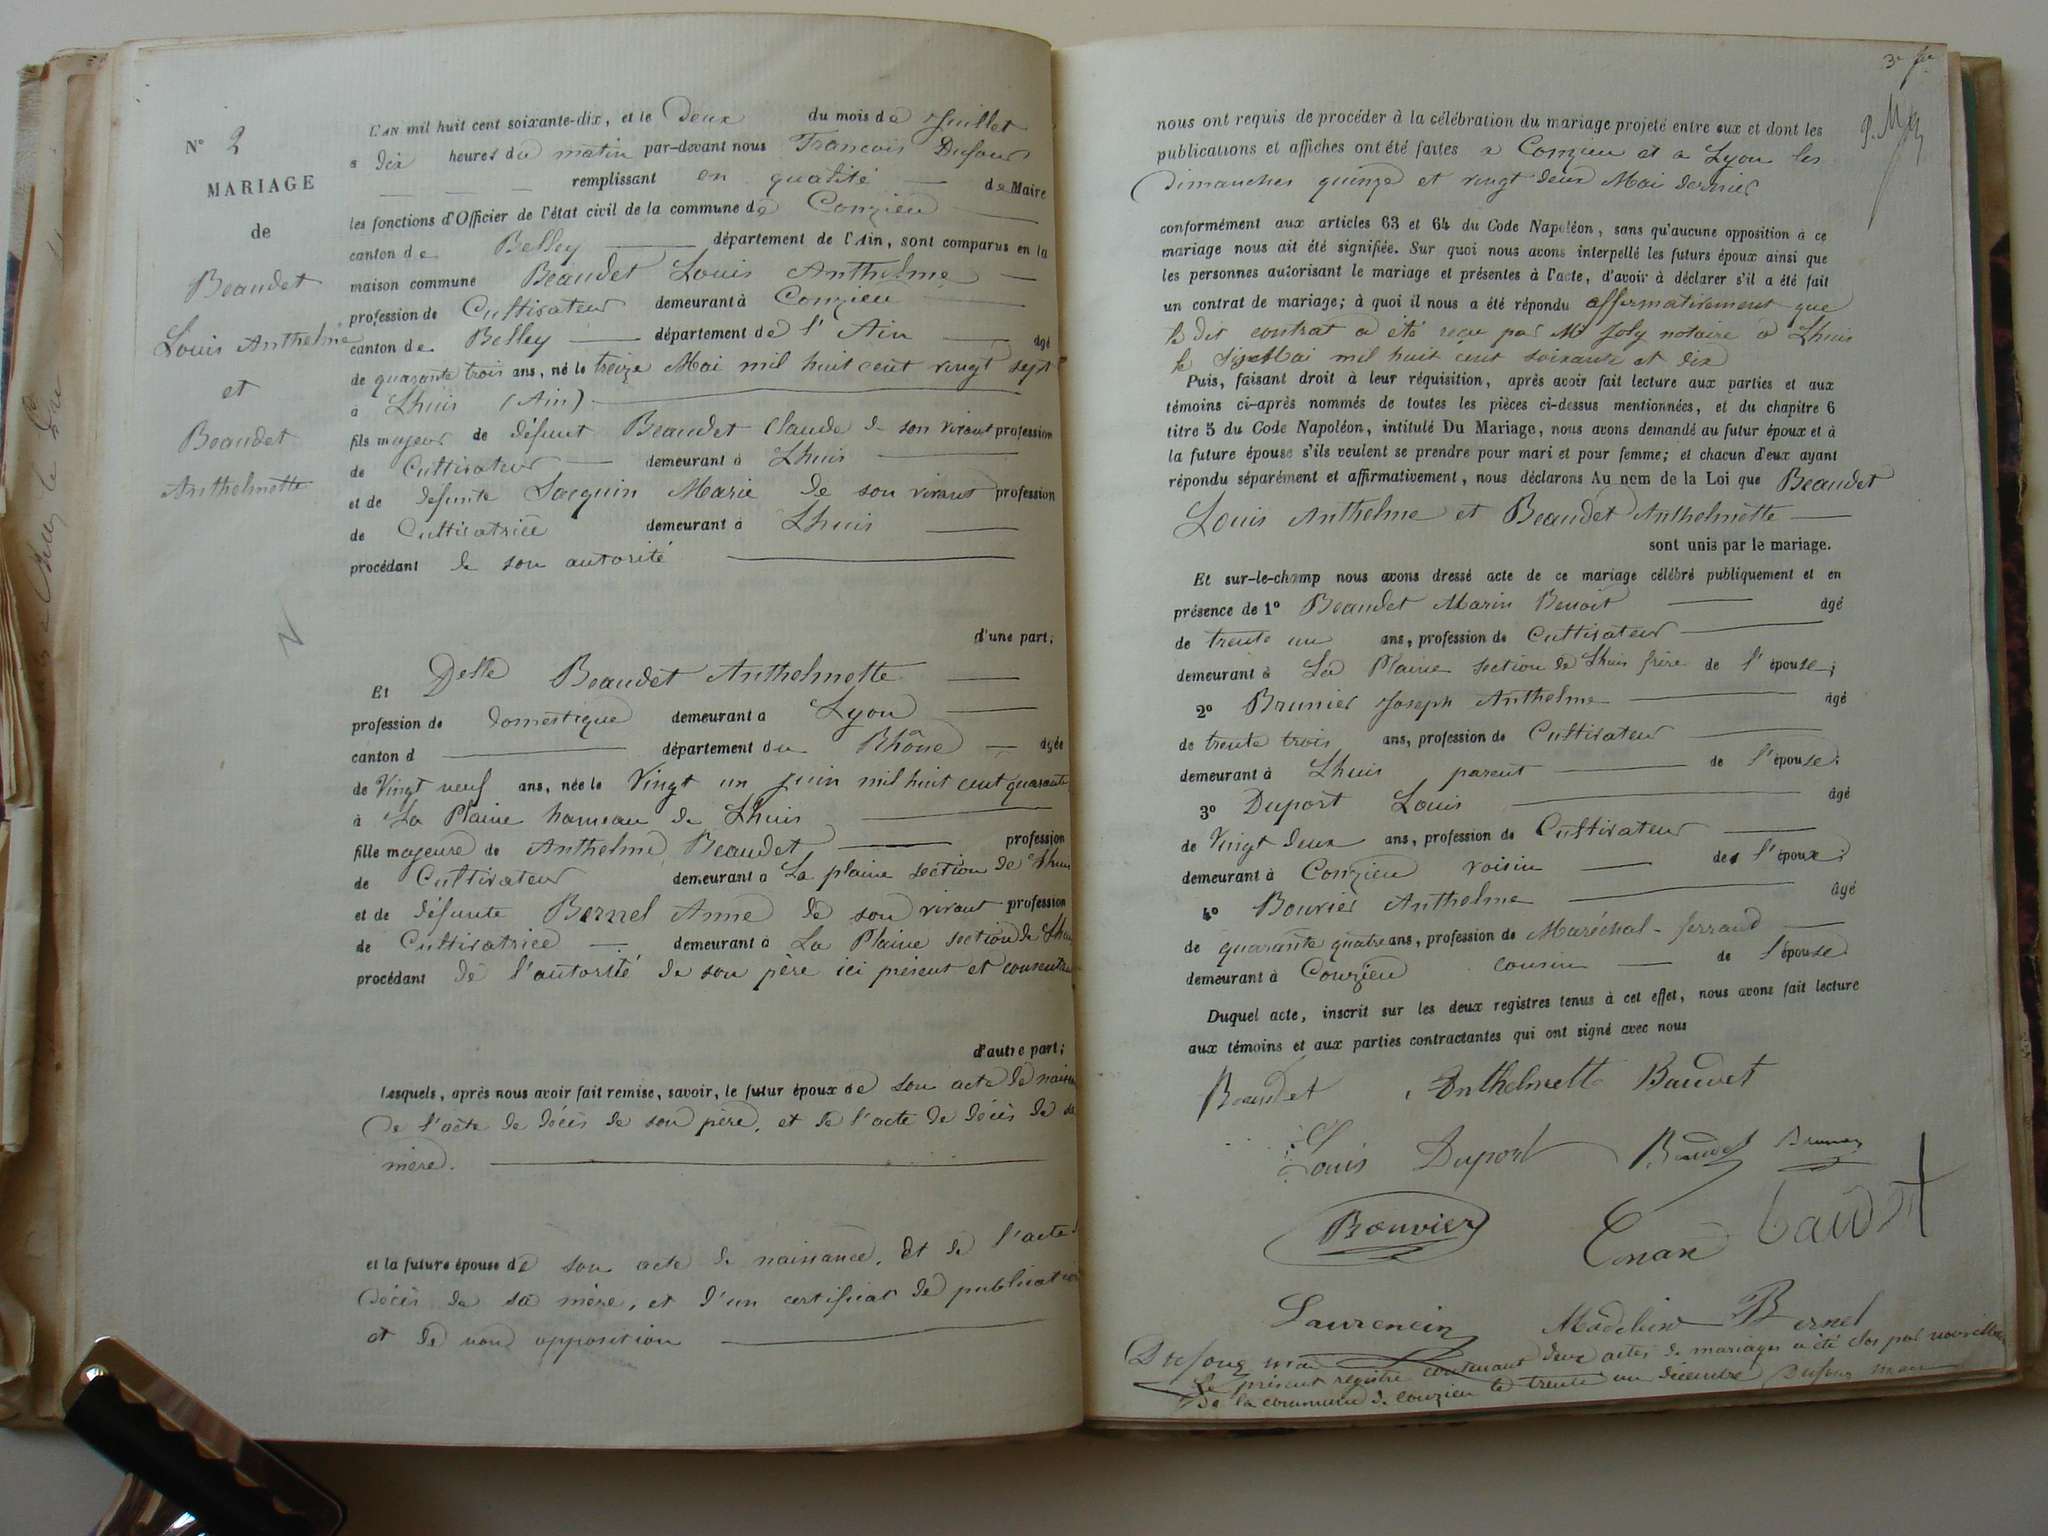 N° 2
MARIAGE
de
Beaudet
Louis Anthelme
et
Beaudet
Anthelmette
L'AN mil huit cent soixante-dix, et le Deux du mois de Juillet
à dix heures du matin par-devant nous François Dufour
remplissant en qualité de Maire
les fonctions d'Officier de l'état civil de la commune de Conzieu
canton de Belley département de l'Ain, sont comparus en la
maison commune Beaudet Louis Anthelme
profession de Cultivateur demeurant à Conzieu
canton de Belley département de l'Ain âgé
de quarante trois ans, né le treize Mai mil huit cent vingt sept
à Lhuis (Ain)
fils majeur de défunt Beaudet Claude de son vivant profession
de Cultivateur demeurant à Lhuis
et de défunte Jacquin Marie de son vivant profession
de Cultivatrice demeurant à Lhuis
procédant de son autorité
d'une part;
Et Delle Beaudet Anthelmette
profession de domestique demeurant à Lyon
canton d département du Rhône âgée
de Vingt neuf ans, née le Vingt un juin mil huit cent quarante
à La Plaine hameau de Lhuis
fille majeure de Anthelme Beaudet profession
de Cultivateur demeurant à La plaine section de Lhuis
et de défunte Bernel Anne de son vivant profession
de Cultivatrice demeurant à La Plaine section de Lhuis
procédant de l'autorité de son père ici présent et consentant
d'autre part;
Lesquels, après nous avoir fait remise, savoir, le futur époux de son acte de naiss
De l'acte de décès de son père, et de l'acte de décès de sa
mère.
et la future épouse de son acte de naissance, Et de l'acte
décès de sa mère, et d'un certificat de publication
et de non opposition
3e
nous ont requis de procéder à la célébration du mariage projeté entre eux et dont les
publications et affiches ont été faites à Conzieu et à Lyon les
Dimanches quinze et vingt deux Mai dernier
conformément aux articles 63 et 64 du Code Napoléon, sans qu'aucune opposition à ce
mariage nous ait été signifiée. Sur quoi nous avons interpellé les futurs époux ainsi que
les personnes autorisant le mariage et présentes à l'acte, d'avoir à déclarer s'il a été fait
un contrat de mariage; à quoi il nous a été répondu affirmativement que
le dit contrat a été reçu par Me Joly notaire à Lhuis
le Mai mil huit cent soixante et dix
Puis, faisant droit à leur réquisition, après avoir fait lecture aux parties et aux
témoins ci-après nommés de toutes les pièces ci-dessus mentionnées, et du chapitre 6
titre 5 du Code Napoléon, intitulé Du Mariage, nous avons demandé au futur époux et à
la future épouse s'ils veulent se prendre pour mari et pour femme; et chacun d'eux ayant
répondu séparément et affirmativement, nous déclarons Au nom de la Loi que Beaudet
Louis Anthelme et Beaudet Anthelmette
sont unis par le mariage.
Et sur-le-champ nous avons dressé acte de ce mariage célébré publiquement et en
présence de 1° Beaudet Marin Benoit âgé
de trente un ans, profession de Cultivateur
demeurant à La Plaine section de Lhuis frère de l'épouse;
2° Brunier Joseph Anthelme âgé
de trente trois ans, profession de Cultivateur
demeurant à Lhuis parent de l'épouse;
3° Duport Louis âgé
de Vingt deux ans, profession de Cultivateur
demeurant à Conzieu voisin de l'époux;
4° Bouvier Anthelme âgé
de quarante quatre ans, profession de Maréchal-ferrand
demeurant à Conzieu cousin de l'épouse
Duquel acte, inscrit sur les deux registres tenus à cet effet, nous avons fait lecture
aux témoins et aux parties contractantes qui ont signé avec nous
Beaudet Anthelmette Baudet
Louis Duport Baudet Brunier
Bouvier
Laurencin Bernel
Le présent registre contenant deux actes de mariages a été clos par nous
de la commune de Conzieu le trente un décembre Dufour maire